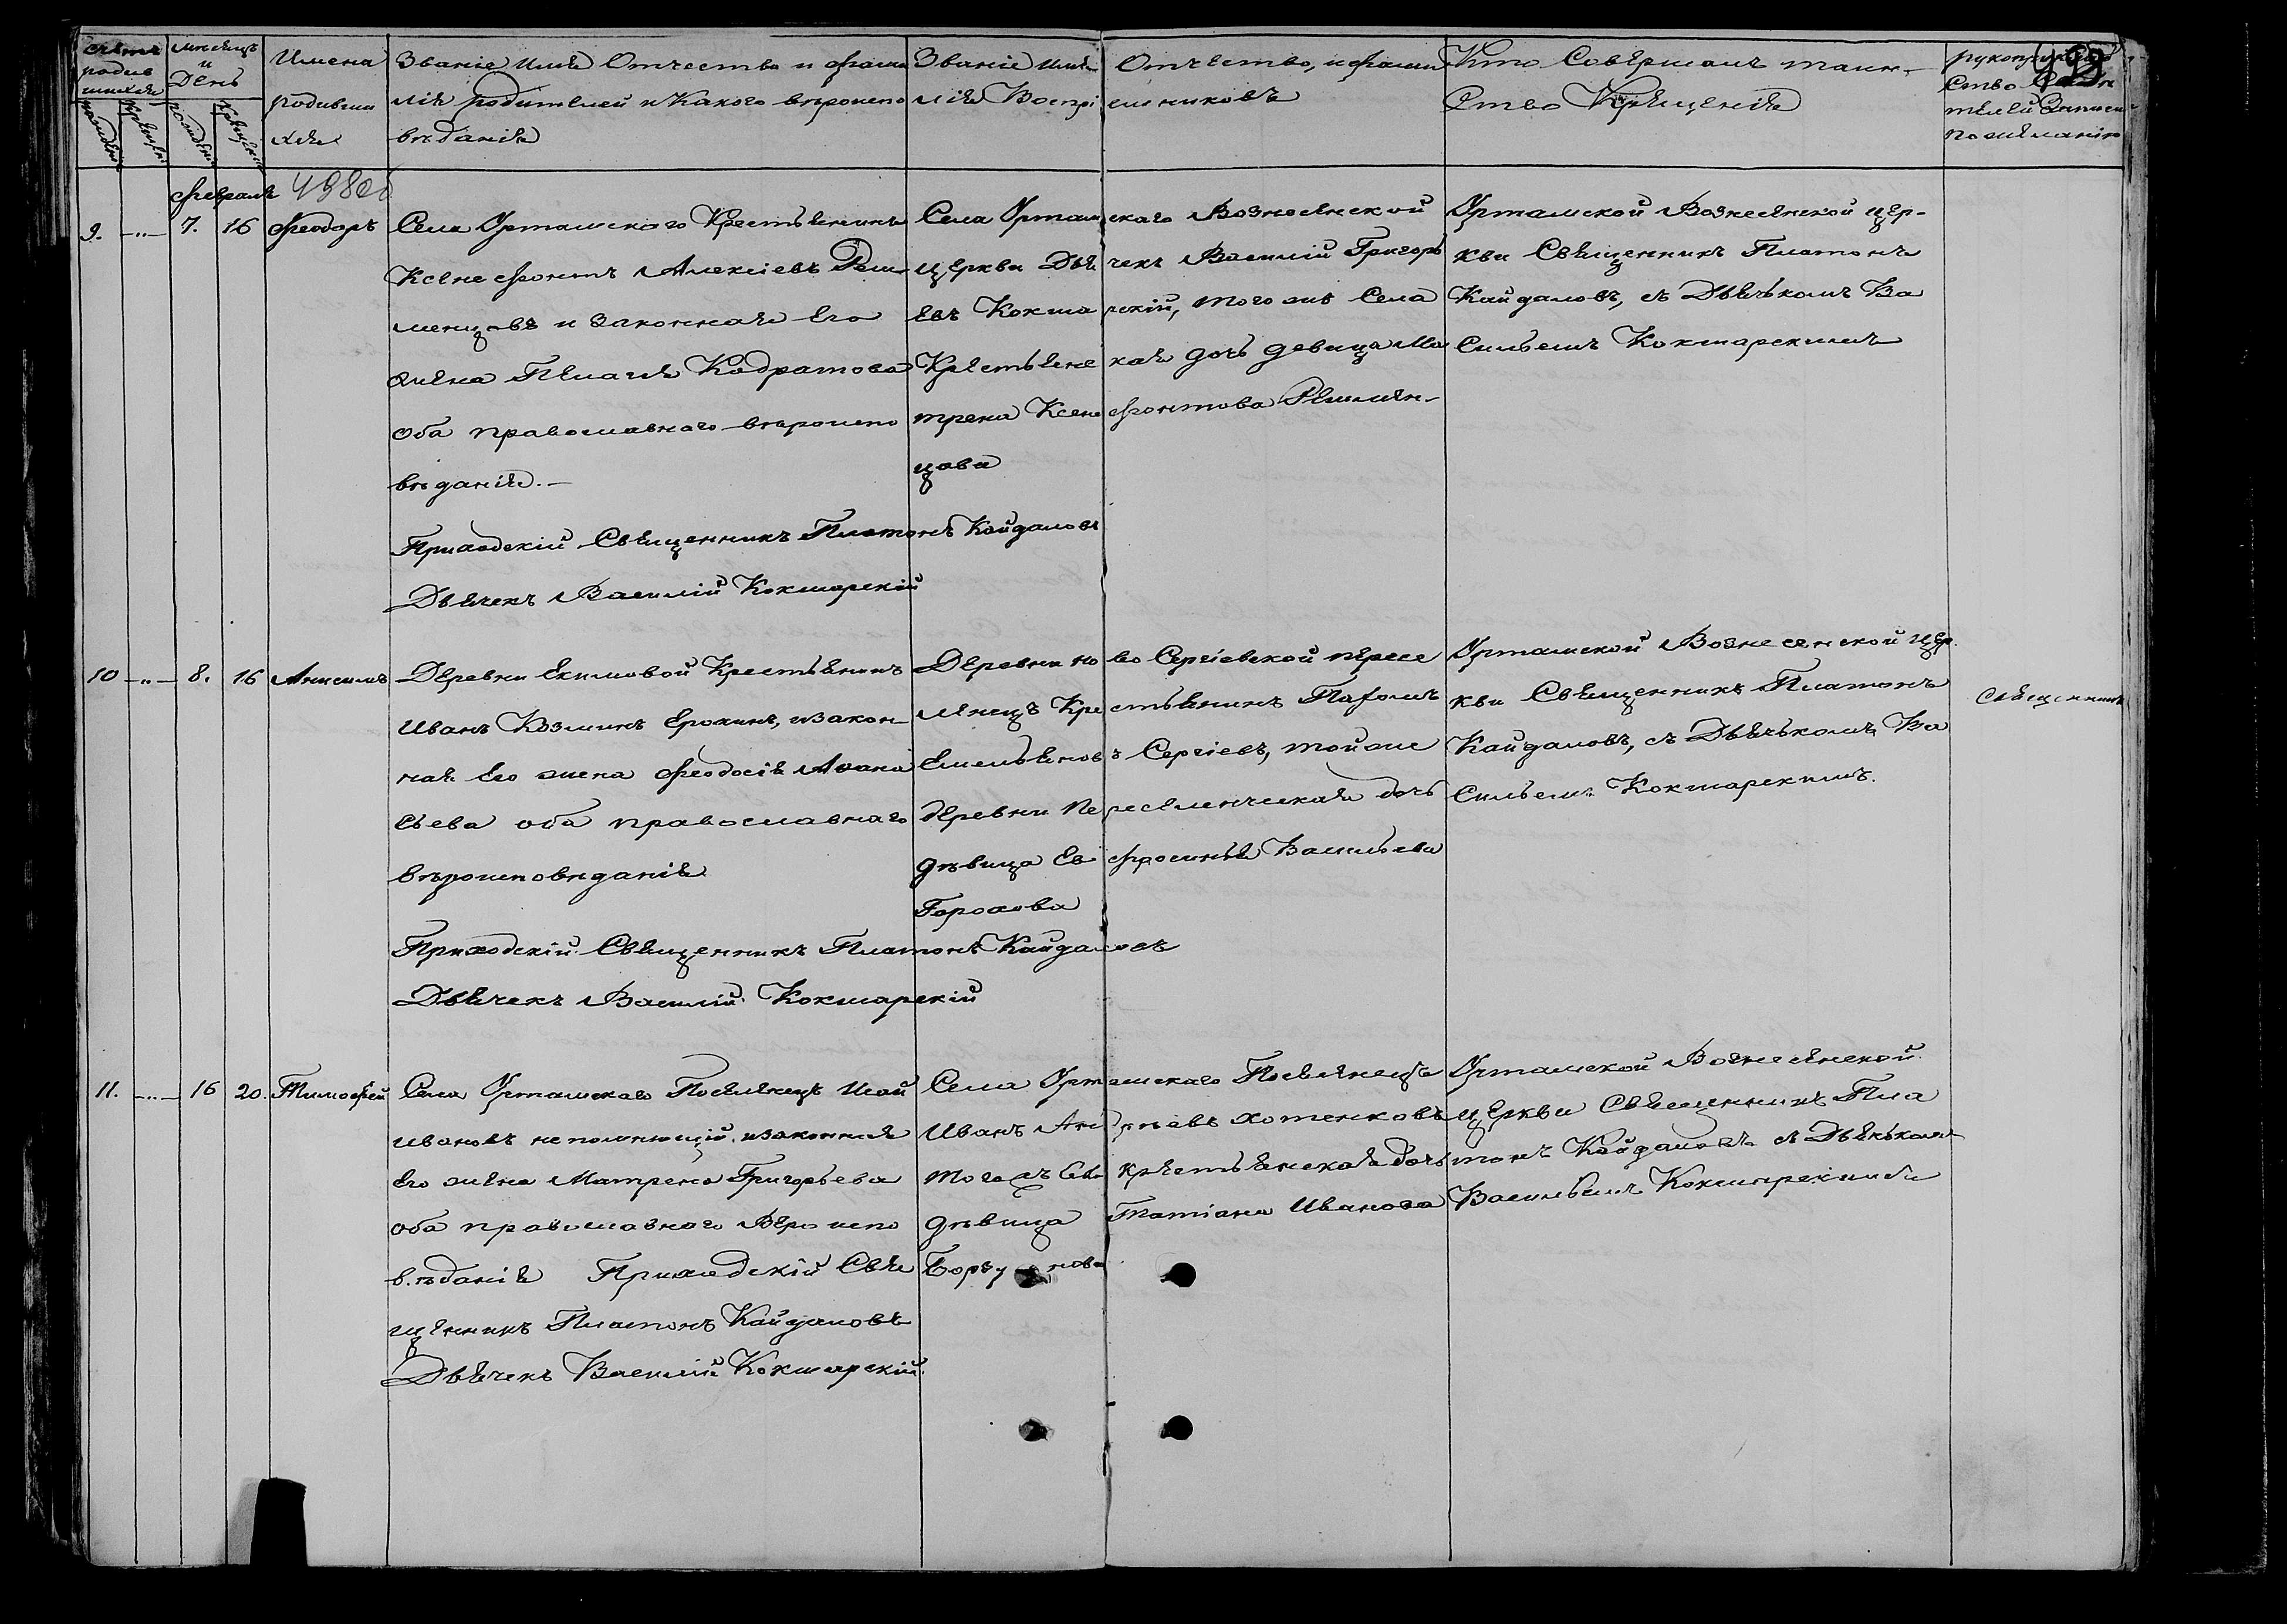 счетъ родив шихся
мужескъ
женскъ
Мѣсяцъ и День
рожденія
Крещенія
Имена родивши хся
Званіе Имя Отчество и фами
лія родителей и Какого вѣроиспо
вѣданія
Званіе имя Отчество, и фами
лія Воспріемниковъ
Кто Совершалъ таин-
ство Крещенія
рукоприклад
ство
телей Записи
по желанію
февраля
9. —„— 7. 16 Феодоръ
Села Урташскаго Крестьянинъ
Ксенофонтъ Алексіевъ Реш
менцовъ и законная Его
жена Пелагія Кодратова
оба православнаго вѣроиспо
вѣданія. —
Приходскій Священникъ Платонъ Кайдаловъ
Дьячекъ Василій Кокшарскій
Села Урташскаго Вознесенской
церкви Дьячекъ Василій Григорь
евъ Кокшарскій, того же Села
Крестьянская дочь девица Ма
трена Ксенофонтова Решмен-
цова
Урташской Вознесенской цер-
кви Священникъ Платонъ
Кайдаловъ, съ Дьячькомъ Ва
сильемъ Кокшарскимъ
10 —„— 8. 16 Анисимъ
Деревни Екимовой Крестьянинъ
Иванъ Козминъ Ерохинъ, и закон-
ная Его жена Феодосія Афана
сьева оба православнаго
вѣроисповѣданія
Приходскій Священникъ Платонъ Кайдаловъ
Дьячекъ Василій Кокшарскій
Деревни Ново Сергіевской пересе
ленецъ Крестьянинъ Пафомъ
Емельяновъ Сергіевъ, той же
деревни Переселенческая дочь
дѣвица Евфросинья Васильева
Горохова
Урташской Вознесенской цер.
кви Священникъ Платонъ
Кайдаловъ, съ Дьячькомъ Ва
сильемъ Кокшарскимъ.
Священникъ
11. —„— 16 20. Тимофей
Села Урташскаго Поселенецъ Исай
Ивановъ непомнющій, и законная
Его жена Матрена Григорьева
оба православнаго Вероиспо
вѣданія Приходскій Свя
щенникъ Платонъ Кайдаловъ
Дьячекъ Василій Кокшарскій.
Села Урташскаго Поселенецъ
Иванъ Андреевъ Хотенковъ
того жъ Села крестьянская дочь
дѣвица Татіана Иванова
Урташской Вознесенской
церкви Священникъ Пла
тонъ Кайдаловъ съ Дьячькомъ
Васильемъ Кокшарскимъ